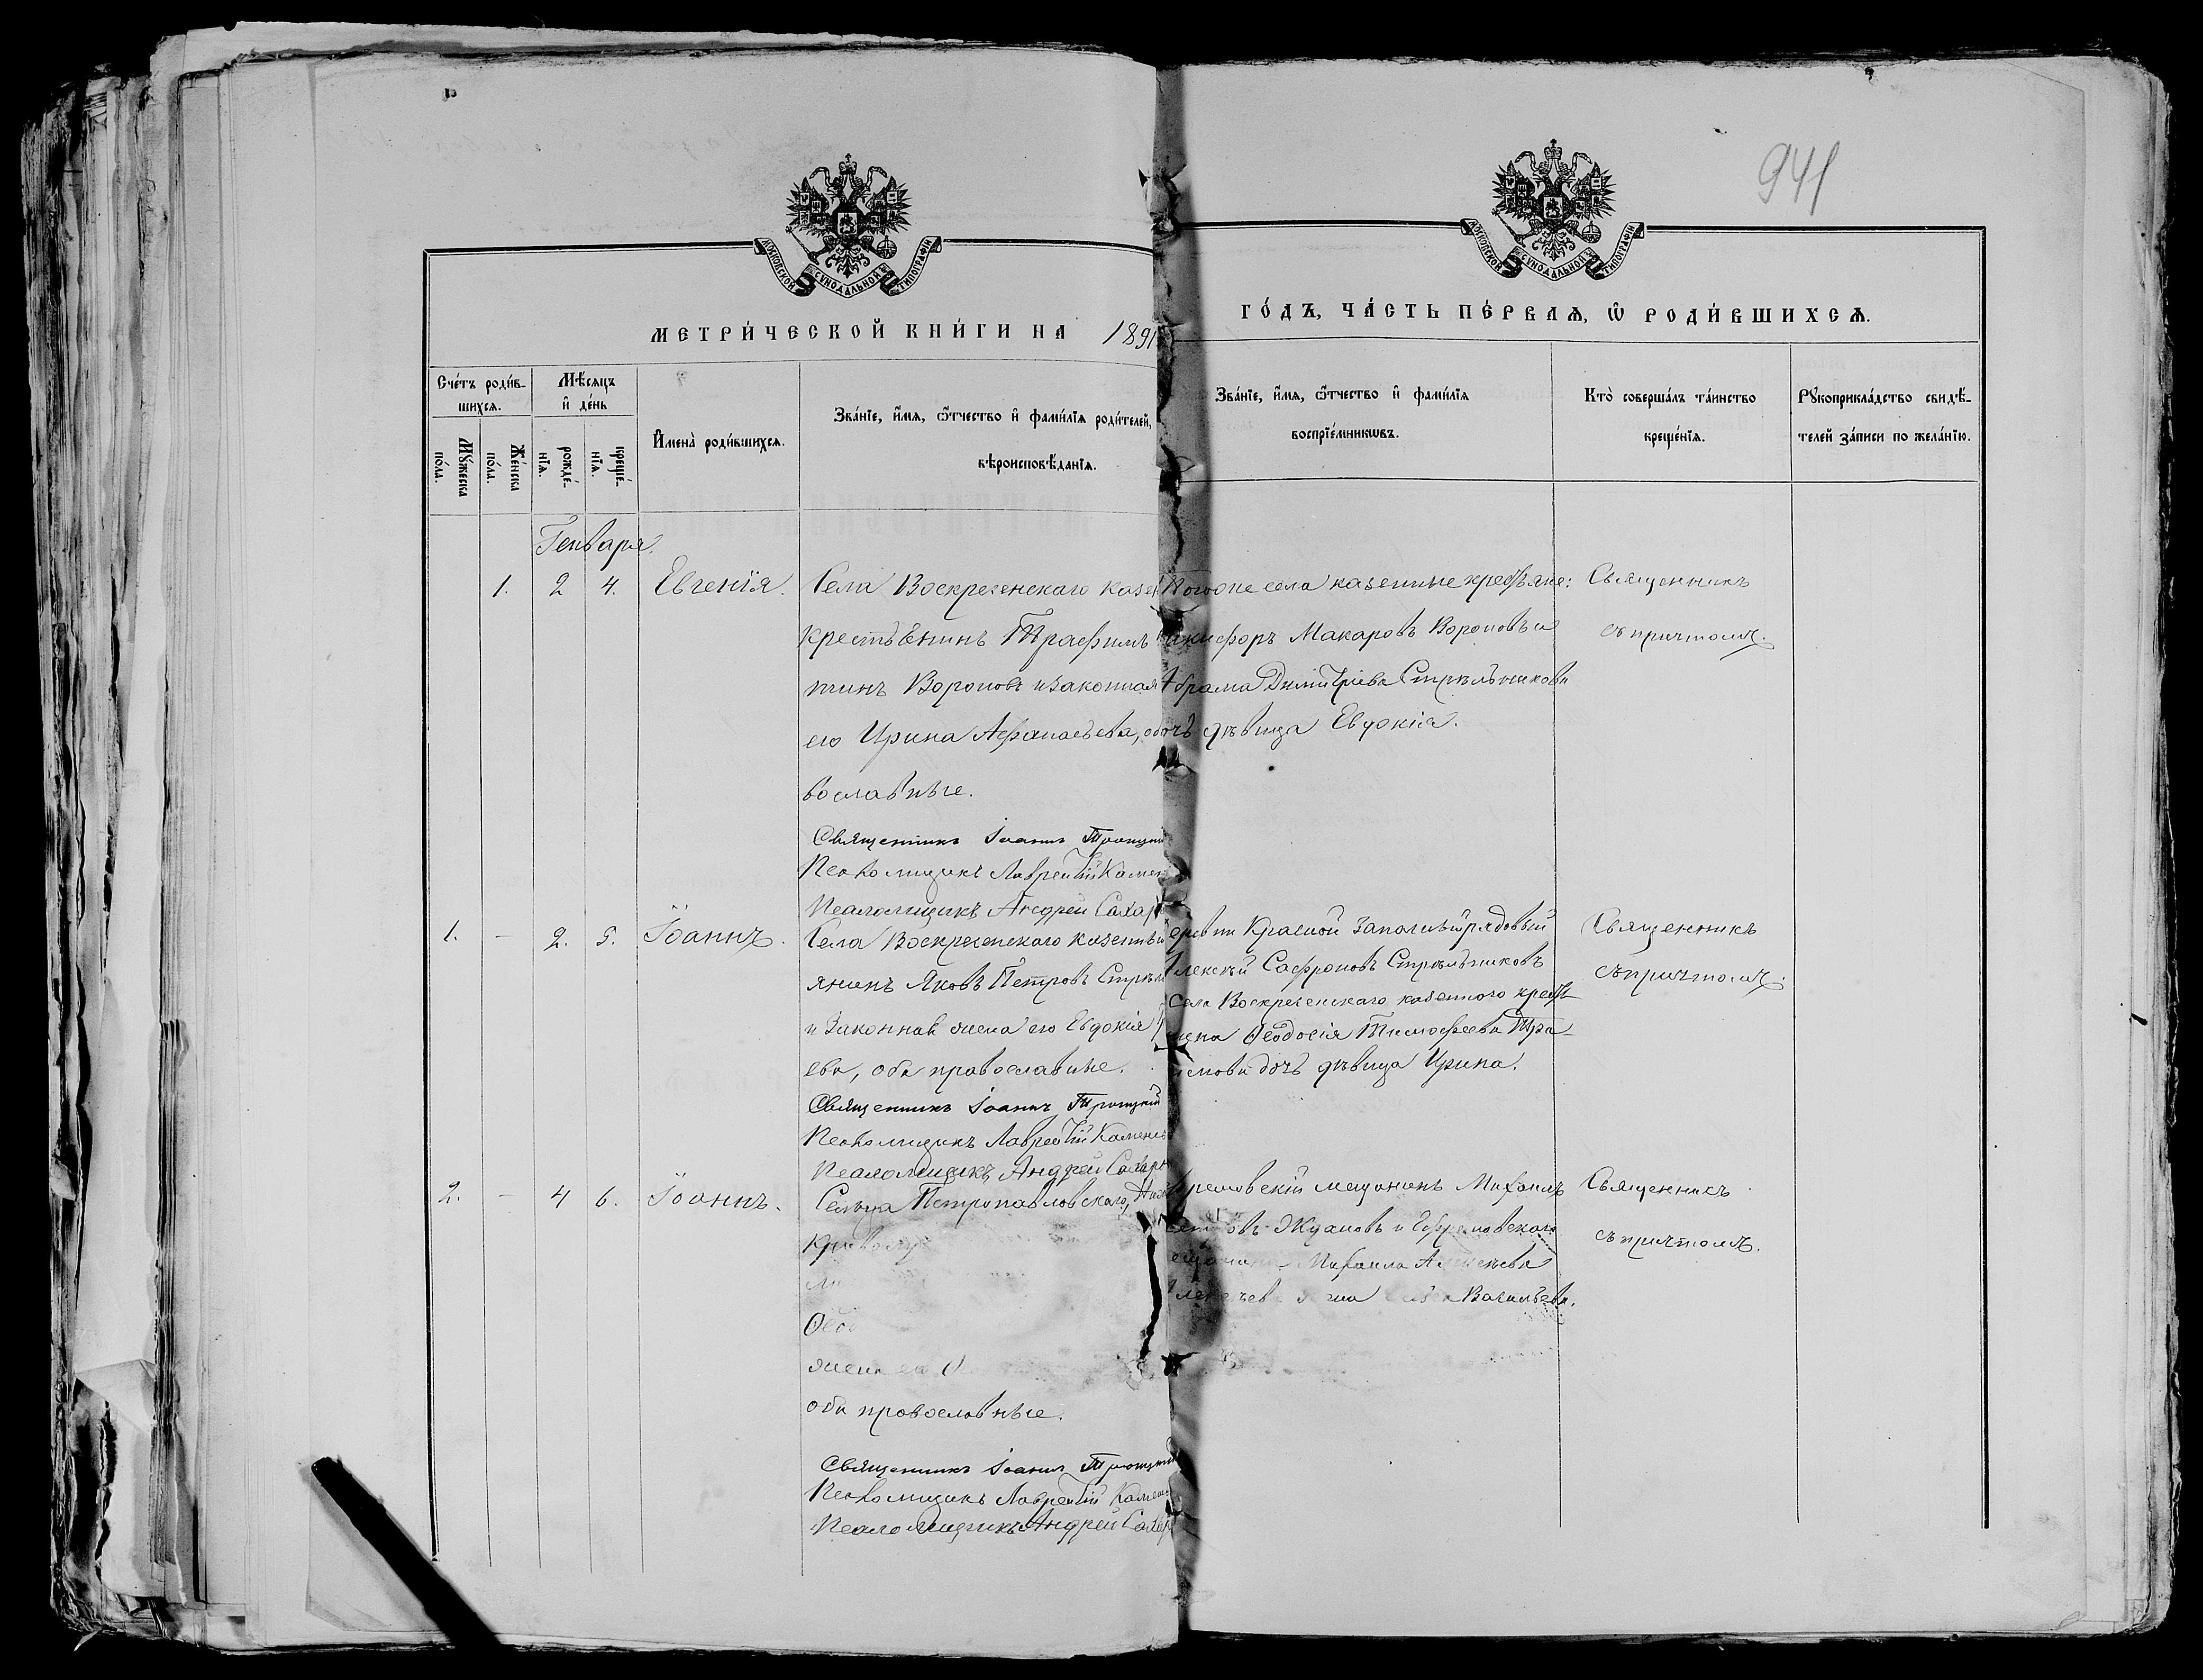 941
МОСКОВСКОЙ СУНОДАЛЬНОЙ ТИПОГРАФІИ
МОСКОВСКОЙ СУНОДАЛЬНОЙ ТИПОГРАФІИ
МЕТРИ́ЧЕСКОЙ КНИ́ГИ НА 1891
ГО́ДЪ, ЧА́СТЬ ПЕ́РВАѦ, Ѡ҃ РОДИ́ВШИХСѦ.
Сче́тъ роди́в-
шихсѧ.
Мꙋ́жеска
по́ла.
Же́нска
по́ла.
Мѣ́сѧцъ
и҆ де́нь
рожде́-
нїѧ.
креще́-
нїѧ.
И҆мена̀ роди́вшихсѧ.
Зва́нїе, и҆́мѧ, ѻ҆́тчество и҆ фами́лїѧ роди́телей,
вѣроисповѣ́данїѧ.
Зва́нїе, и҆́мѧ, ѻ҆́тчество и҆ фами́лїѧ
воспрїе́мникѡвъ.
Кто̀ соверша́лъ та́инство
креще́нїѧ.
Рꙋкоприкла́дство свидѣ́-
телей за́писи по жела́нїю.
Генваря.
1. 2 4. Евгенія.
Села Воскресенскаго казен
крестьенинъ Трафимъ
тинъ Вороновъ и законная
его Ирина Афанасьева, оба
вославные.
Священникъ Іоаннъ Троицкій
Псаломщикъ Лаврентій Камен
Псаломщикъ Андрей Сахар
Тогоже села казенные крестьяне:
Никифоръ Макаровъ Вороновъ и
Абрама Димитріева Стрѣльникова
дочь дѣвица Евдокія.
Священникъ
съ причтомъ.
1. – 2. 5. Іоаннъ.
Села Воскресенскаго казенный
янинъ Яковъ Петровъ Стрѣл
и законная жена его Евдокія
ева, оба православные.
Священникъ Іоаннъ Троицкій
Псаломщикъ Лаврентій Каменс
Псаломщикъ Андрей Сахаро
Красной рядовый
Алексѣй Сафроновъ Стрѣльниковъ
Села Воскресенскаго казенного крест
Феодосія Тимофеева
дочь дѣвица Ирина.
Священникъ
съ причтомъ.
2. – 4 6. Іоаннъ.
Сельца Петропавловскаго,
жена его
оба православные.
Священникъ Іоаннъ Троицкій
Псаломщикъ Лаврентій Камен
Псаломщикъ Андрей Сахар
Ефремовскій мещанинъ Михаилъ
Ждановъ и Ефремовскаго
Михаила Алексѣева
Васильева.
Священникъ
съ причтомъ.